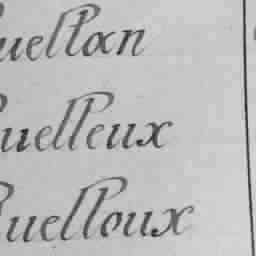 uellan
uelleux
uelloux